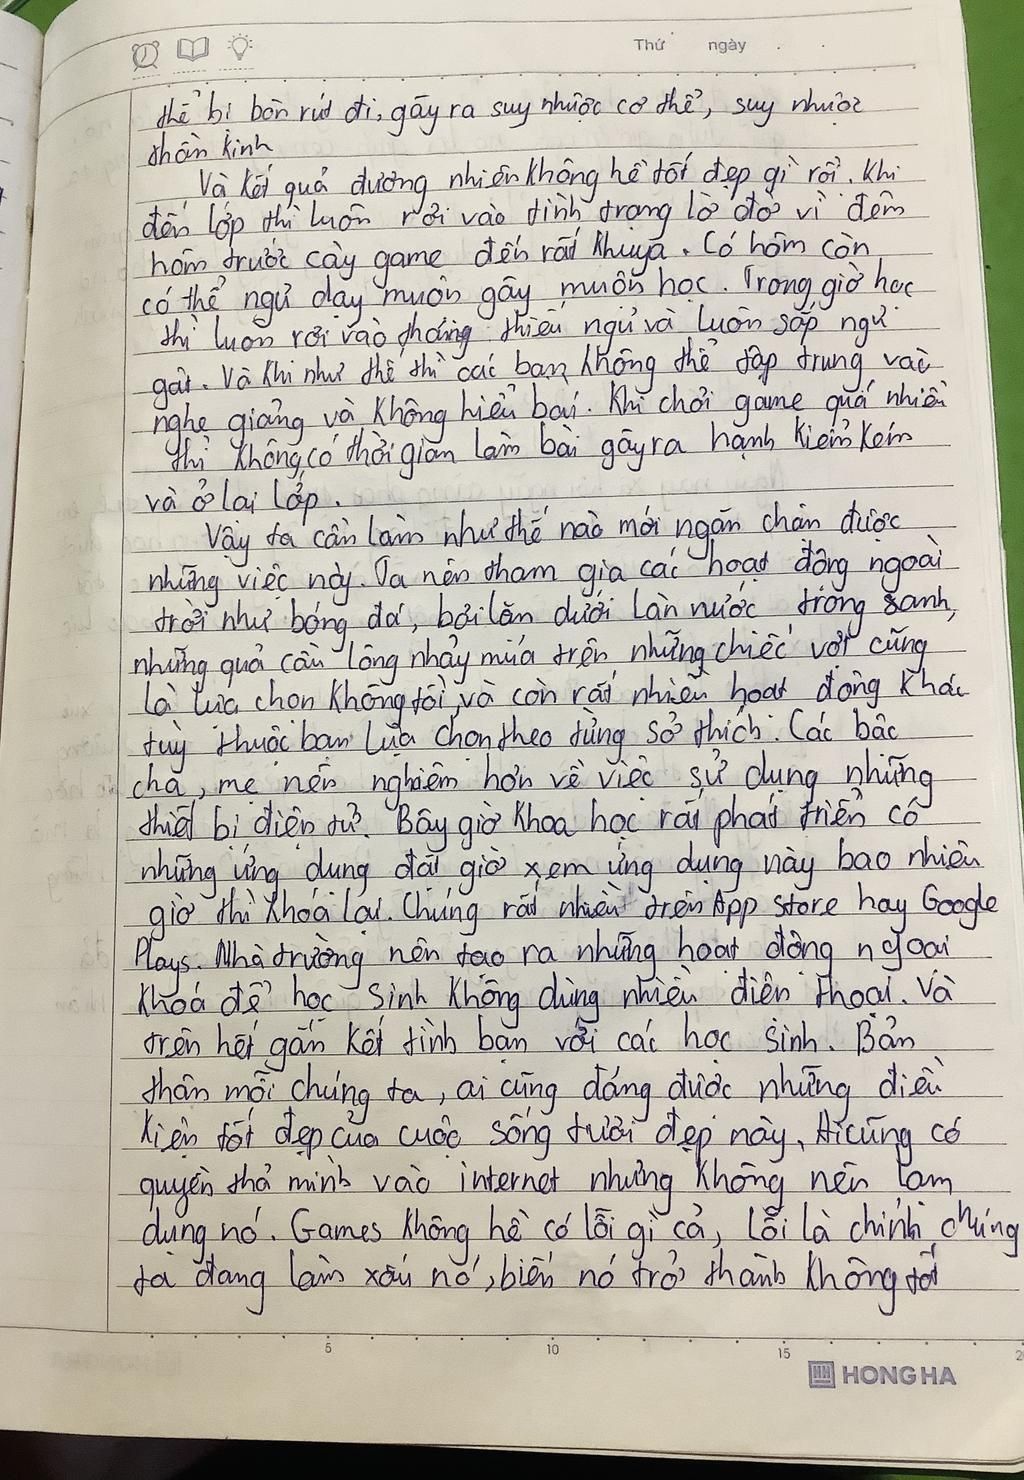 Thứ ngày
thể bị bòn rút đi, gây ra suy nhược cơ thể, suy nhược
thần kinh
Và kết quả đương nhiên không hề tốt đẹp gì rồi. Khi
đến lớp thì luôn rơi vào tình trạng lờ đờ vì đêm
hôm trước cày game đến rất khuya. Có hôm còn
có thể ngủ dạy muôn gây muôn học. Trong giờ học
thì luôn rơi vào tháng thiếu ngủ và luôn sắp ngủ
gật. Và khi như thế thì các bạn không thể tập trung vào
nghe giảng và không hiểu bài. Khi chơi game quá nhiều
thì không có thời gian làm bài gây ra hạnh kiểm kém
và ở lại lớp.
Vậy ta cần làm như thế nào mới ngăn chặn được
những việc này. Ta nên tham gia các hoạt động ngoài
trời như bóng đá, bơi lặn dưới làn nước trong sanh,
những quả cầu lông nhảy múa trên những chiếc vợt cũng
là lựa chọn không tồi, và còn rất nhiều hoạt động khác
tuỳ thuộc bạn lựa chọn theo từng sở thích. Các bậc
cha, mẹ nên nghiêm hơn về việc sử dụng những
thiết bị điện tử. Bây giờ khoa học rất phát triển có
những ứng dụng đặt giờ xem ứng dụng này bao nhiêu
giờ thì khoá lại. Chúng rất nhiều trên App store hay Google
Plays. Nhà trường nên tạo ra những hoạt động ngoại
khoá để học sinh không dùng nhiều điện thoại. Và
trên hết gắn kết tình bạn với các học sinh. Bản
thân mỗi chúng ta, ai cũng đáng được những điều
kiện tốt đẹp của cuộc sống tươi đẹp này. Ai cũng có
quyền thả mình vào internet nhưng không nên lạm
dụng nó. Games không hề có lỗi gì cả, lỗi là chính chúng
ta đang làm xấu nó, biến nó trở thành không tốt
5 10 15
HONG HA